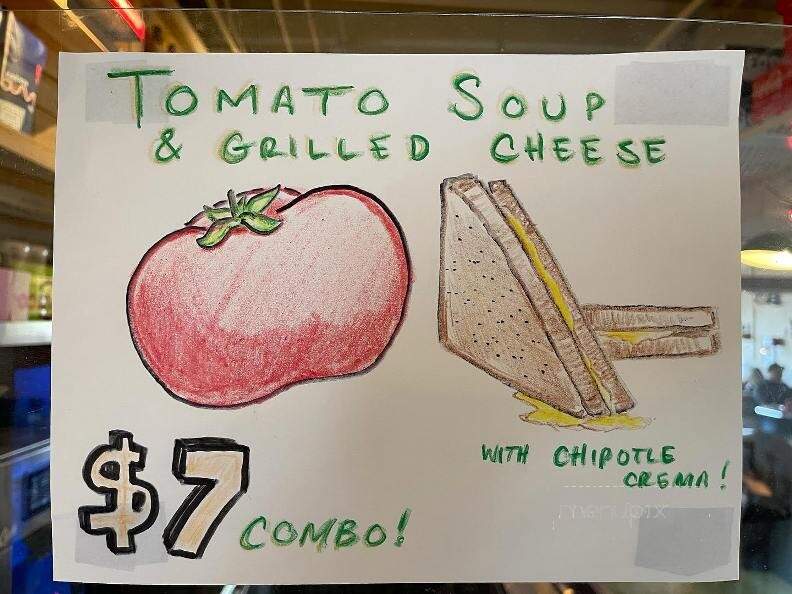 TOMATO SOUP
& GRILLED CHEESE
WITH CHIPOTLE
CREMA!
$7 COMBO!